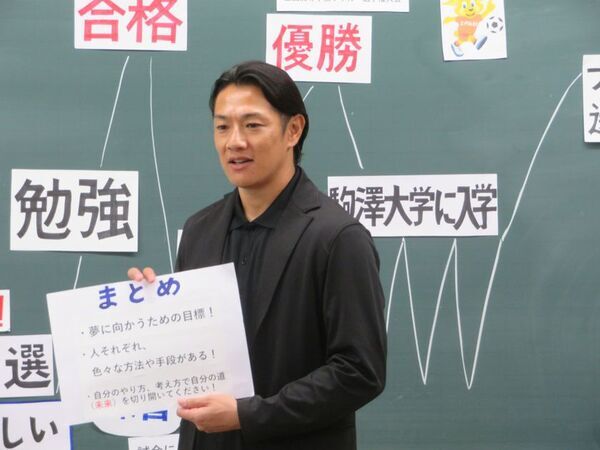 合格
優勝
勉強
駒澤大学に入学
選
しい
まとめ
・夢に向かうための目標！
・人それぞれ、
色々な方法や手段がある！
・自分のやり方、考え方で自分の道
（未来）を切り開いてください！